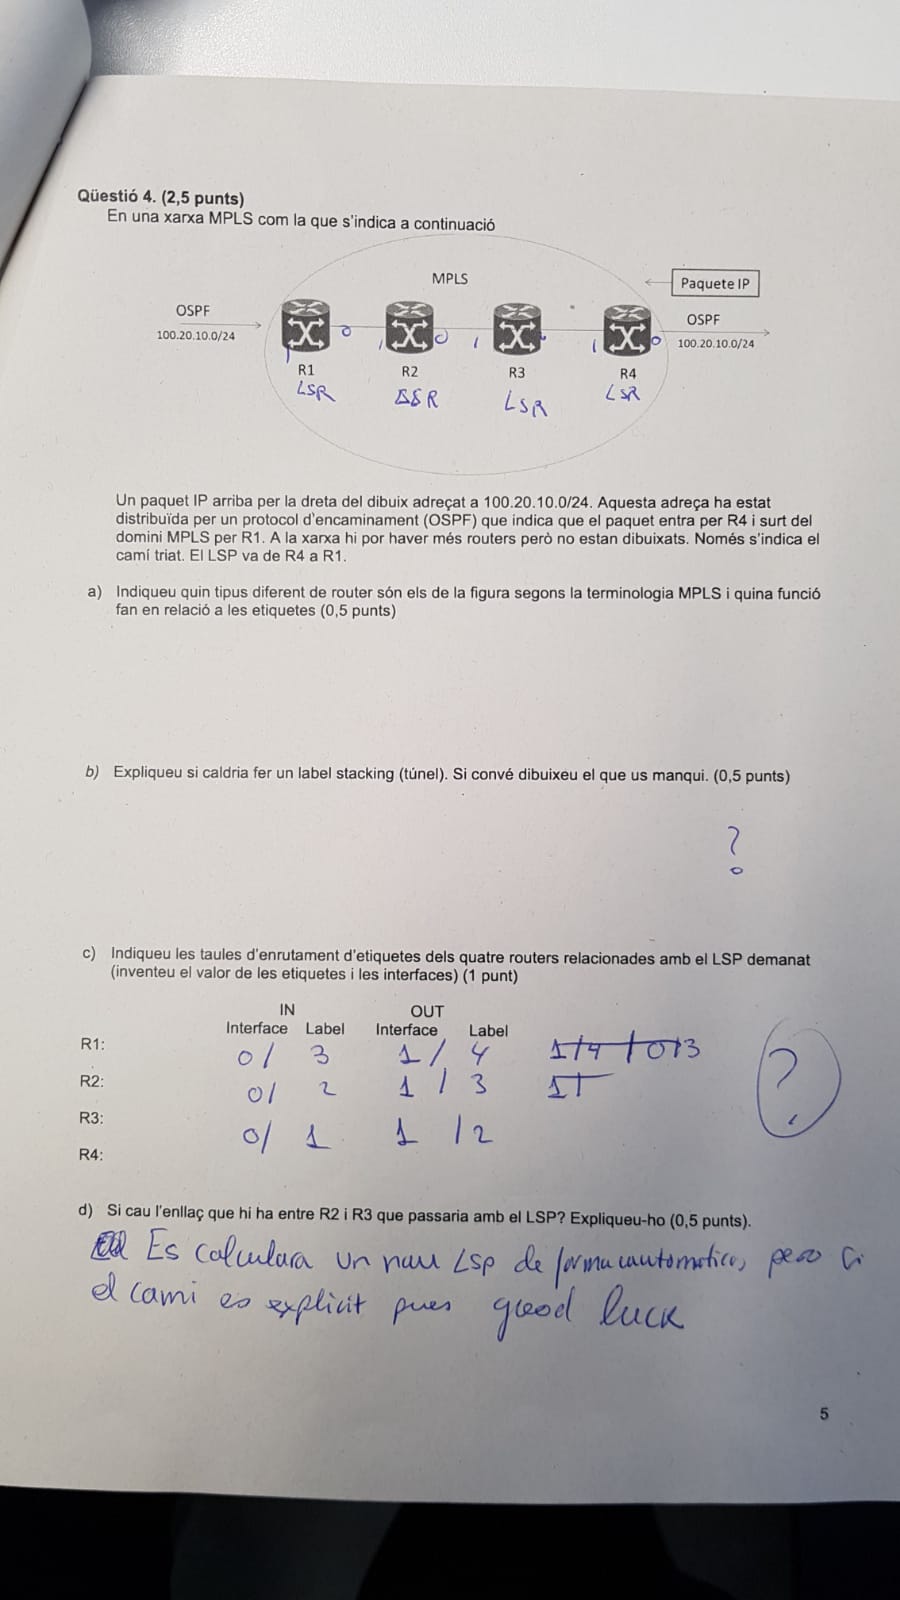 Qüestió 4. (2,5 punts)
En una xarxa MPLS com la que s'indica a continuació
MPLS
Paquete IP
OSPF
100.20.10.0/24
OSPF
100.20.10.0/24
1 0 1 0 1 1 0
R1 R2 R3 R4
LSR LSR LSR
Un paquet IP arriba per la dreta del dibuix adreçat a 100.20.10.0/24. Aquesta adreça ha estat
distribuïda per un protocol d'encaminament (OSPF) que indica que el paquet entra per R4 i surt del
domini MPLS per R1. A la xarxa hi por haver més routers però no estan dibuixats. Només s'indica el
camí triat. El LSP va de R4 a R1.
a) Indiqueu quin tipus diferent de router són els de la figura segons la terminologia MPLS i quina funció
fan en relació a les etiquetes (0,5 punts)
b) Expliqueu si caldria fer un label stacking (túnel). Si convé dibuixeu el que us manqui. (0,5 punts)
?
c) Indiqueu les taules d'enrutament d'etiquetes dels quatre routers relacionades amb el LSP demanat
(inventeu el valor de les etiquetes i les interfaces) (1 punt)
IN OUT
Interface Label Interface Label
R1: 0/ 3 1/ 4 1/4 / 0/3
R2: 0/ 2 1 / 3
R3: 0/ 1 1 /2
R4:
?
d) Si cau l'enllaç que hi ha entre R2 i R3 que passaria amb el LSP? Expliqueu-ho (0,5 punts).
Es calculara un nou LSP de forma automatica, pero si
el cami es explicit pues good luck
5